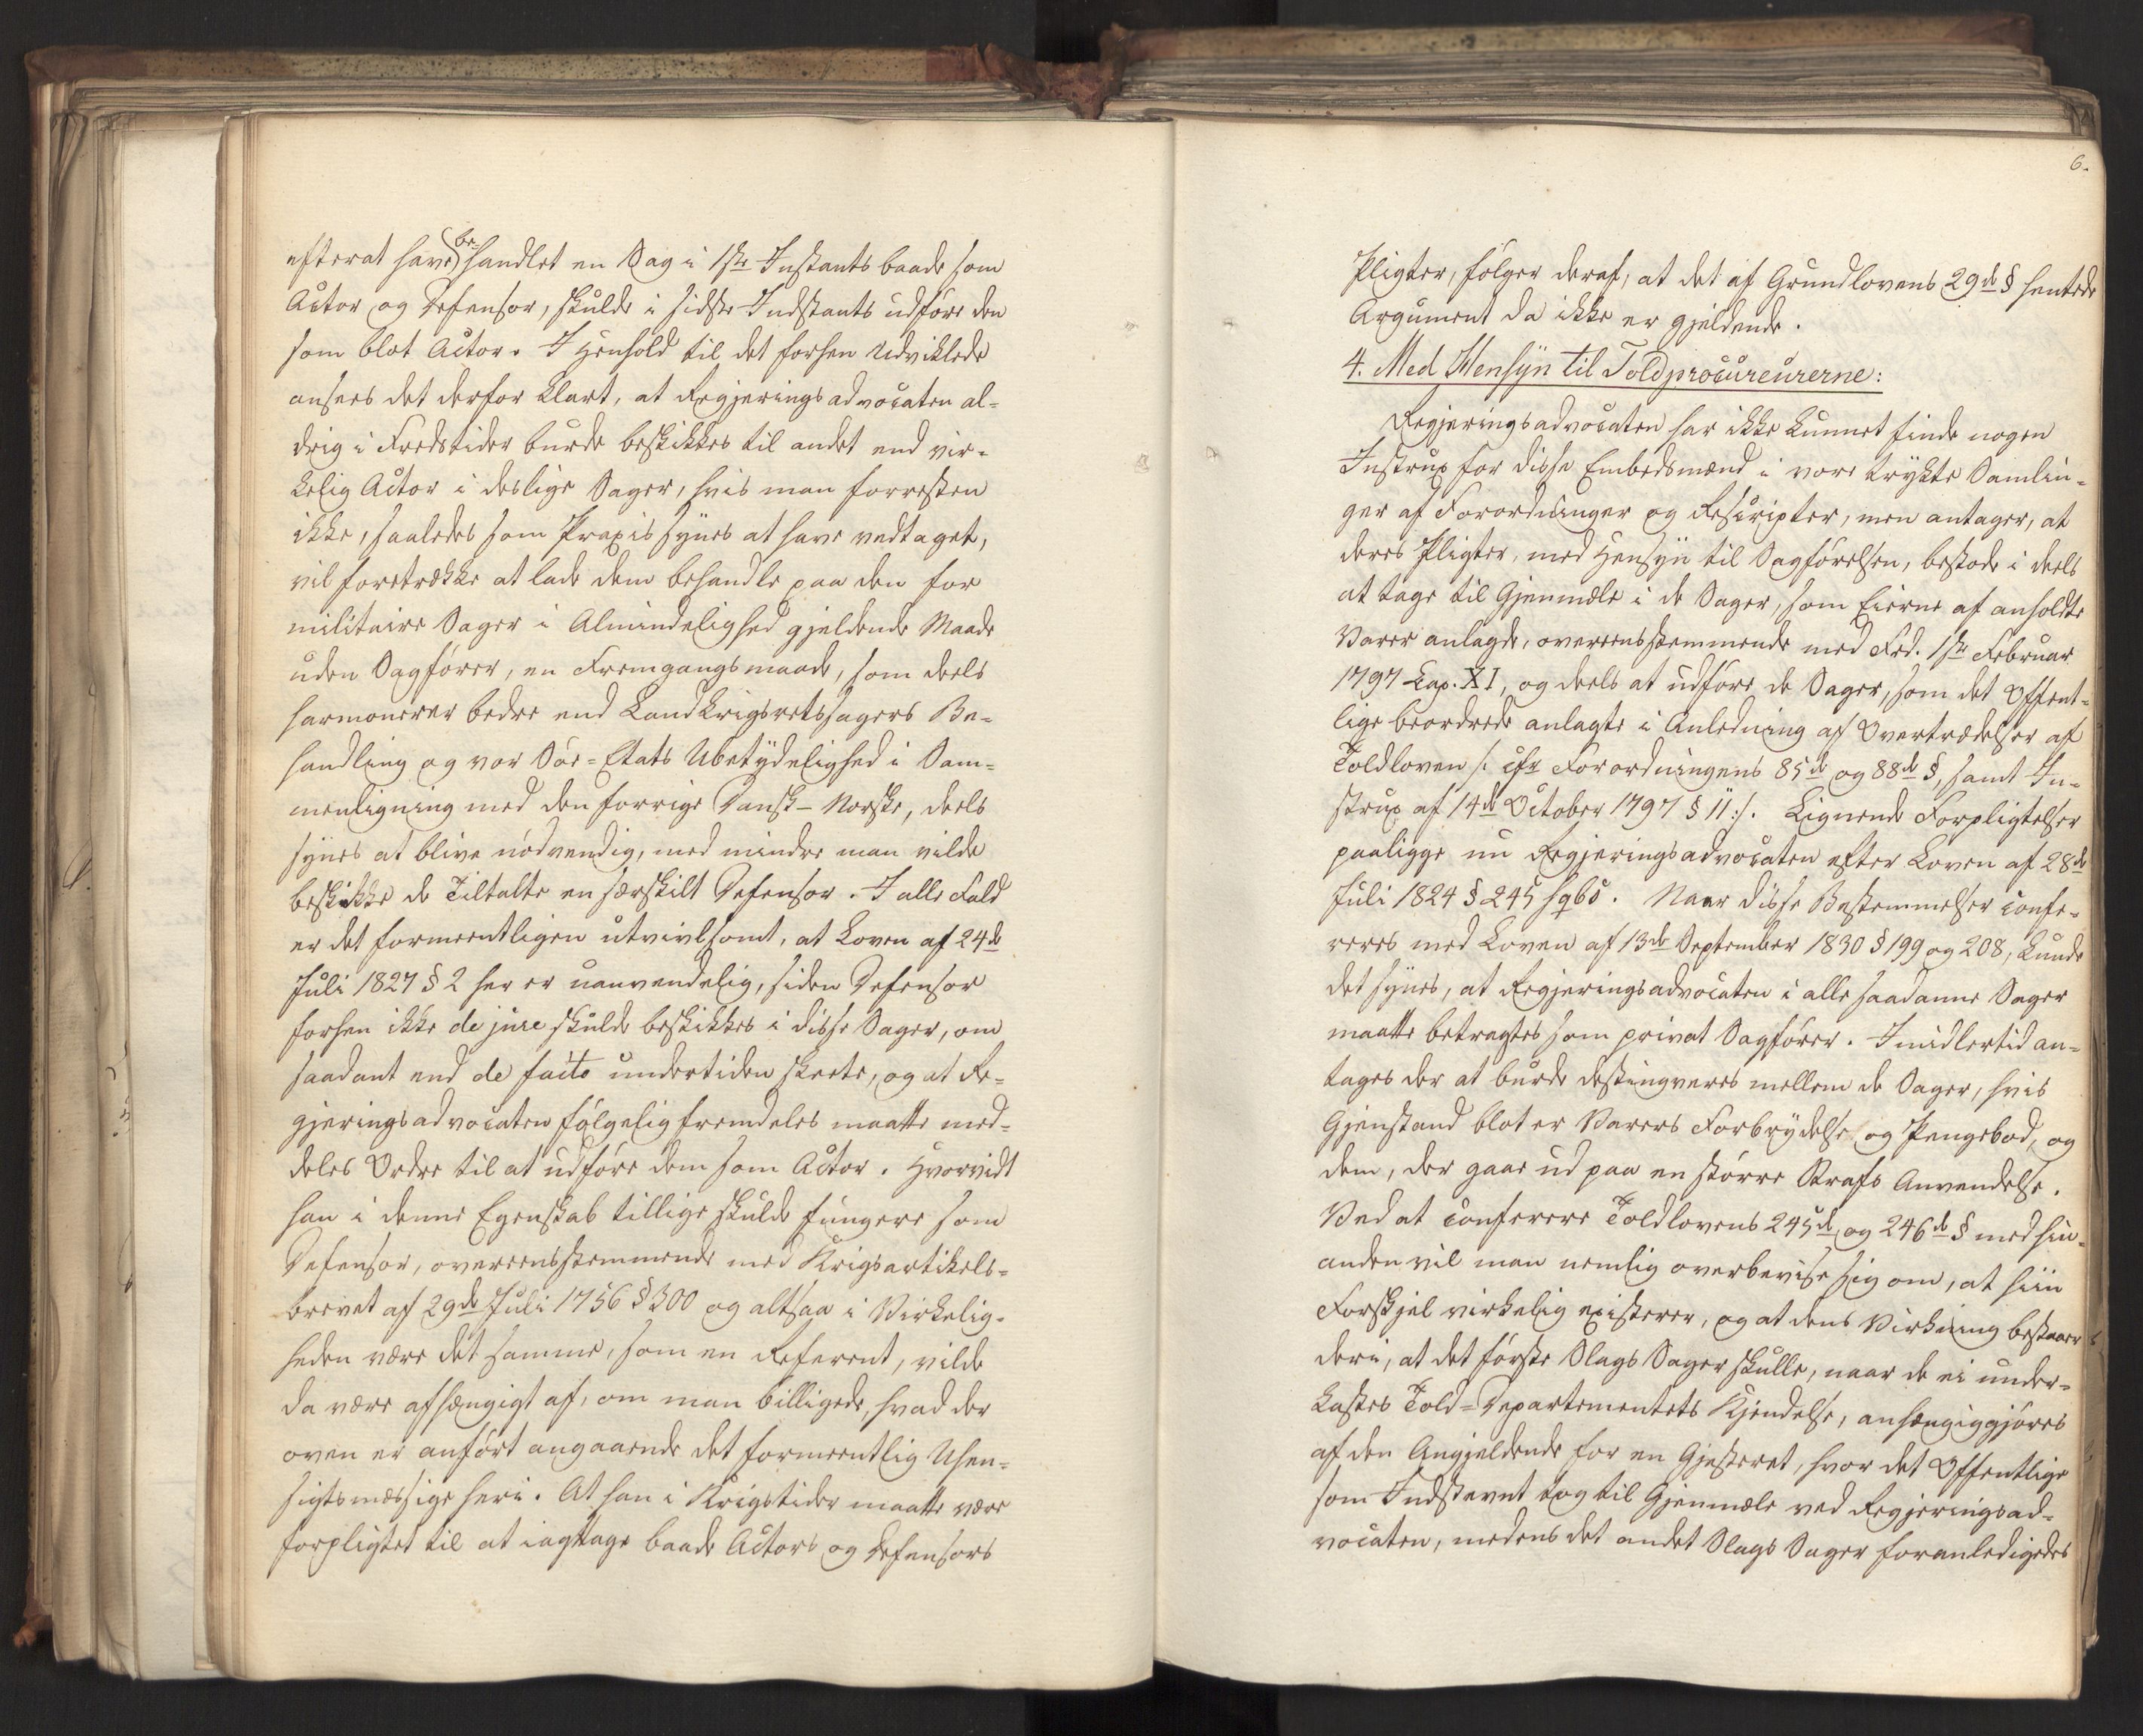 efterat have behandlet en Sag i 1ste Instants baade som
Actor og Defensor, skulde i sidste Indstants udføre den
som blot Actor. I Henhold til det forhen Udviklede
ansees det derfor klart, at Regjeringsadvocaten al-
drig i Fredstider burde beskikkes til andet end vir-
kelig Actor i deslige Sager, hvis man forresten
ikke, saaledes som Praxis synes at have vedtaget,
vil foretrække at lade dem behandle paa den for
militaire Sager i Almindelighed gjeldende Maade
uden Sagfører, en Fremgangsmaade, som deels
harmonerer bedre end Landkrigsretssagers Be-
handling og vor Søe-Etats Ubetydelighed i Sam-
menligning med den forrige Dansk-Norske, deels
synes at blive nødvendig, med mindre man vilde
beskikke de Tiltalte en særskilt Defensor. I alle Fald
er det formeentligen utvivlsomt, at Loven af 24de
Juli 1827 § 2 her er uanvendelig, siden Defensor
forhen ikke de jure skulde beskikkes i disse Sager, om
saadant end de facto undertiden skeete, og at Re-
gjeringsadvocaten følgelig fremdeles maatte med-
deles Ordre til at udføre dem som Actor. Hvorvidt
han i denne Egenskab tillige skulde fungere som
Defensor, overeensstemmende med Krigsartikels-
brevet af 29de Juli 1756 § 300 og altsaa i Virkelig-
heden være det samme, som en Referent, vilde
da være afhængigt af, om man billigede, hvad der
oven er anført angaaende det formeentlig Uhen-
sigtsmæssige heri. At han i Krigstider maatte være
forpligtet til at iagttage baade Actors og Defensors
6.
Pligter, følger deraf, at det af Grundlovens 29de § hentede
Argument da ikke er gjeldende.
4. Med Hensyn til Toldprocureurerne:
Regjeringsadvocaten har ikke kunnet finde nogen
Instrux for disse Embedsmænd i vore trykte Samlin-
ger af Forordninger og Rescripter, men antager, at
deres Pligter, med Hensyn til Sagførelsen, bestode i deels
at tage til Gjenmæle i de Sager, som Eierne af anholdte
Varer anlagde, overeensstemmende med Frd. 1ste Februar
1797 Cap. XI, og deels at udføre de Sager, som det Offent-
lige beordrede anlagte i Anledning af Overtrædelser af
Toldloven /: cfr Forordningens 85de og 88de §, samt In-
strux af 14de October 1797 § 11 :/. Lignende Forpligtelser
paaligge nu Regjeringsadvocaten efter Loven af 28de
Juli 1824 § 245 sqbs. Naar disse Bestemmelser confe-
reres med Loven af 13de September 1830 § 199 og 208, kunde
det synes, at Regjeringsadvocaten i alle saadanne Sager
maatte betragtes som privat Sagfører. Imidlertid an-
tages der at burde destingveres mellem de Sager, hvis
Gjenstand blot er Varers Forbrydelse og Pengebod, og
dem, der gaae ud paa en større Strafs Anvendelse.
Ved at conferere Toldlovens 245de og 246de § med hin-
anden vil man nemlig overbevise sig om, at hiin
Forskjel virkelig existerer, og at dens Virkning bestaaer
deri, at det første Slags Sager skulle, naar de ei under-
kastes Told-Departementets Kjendelse, anhængiggjøres
af den Angjeldende for en Gjesteret, hvor det Offentlige
som Indstevnt tog til Gjenmæle ved Regjeringsad-
vocaten, medens det andet Slags Sager foranledigedes